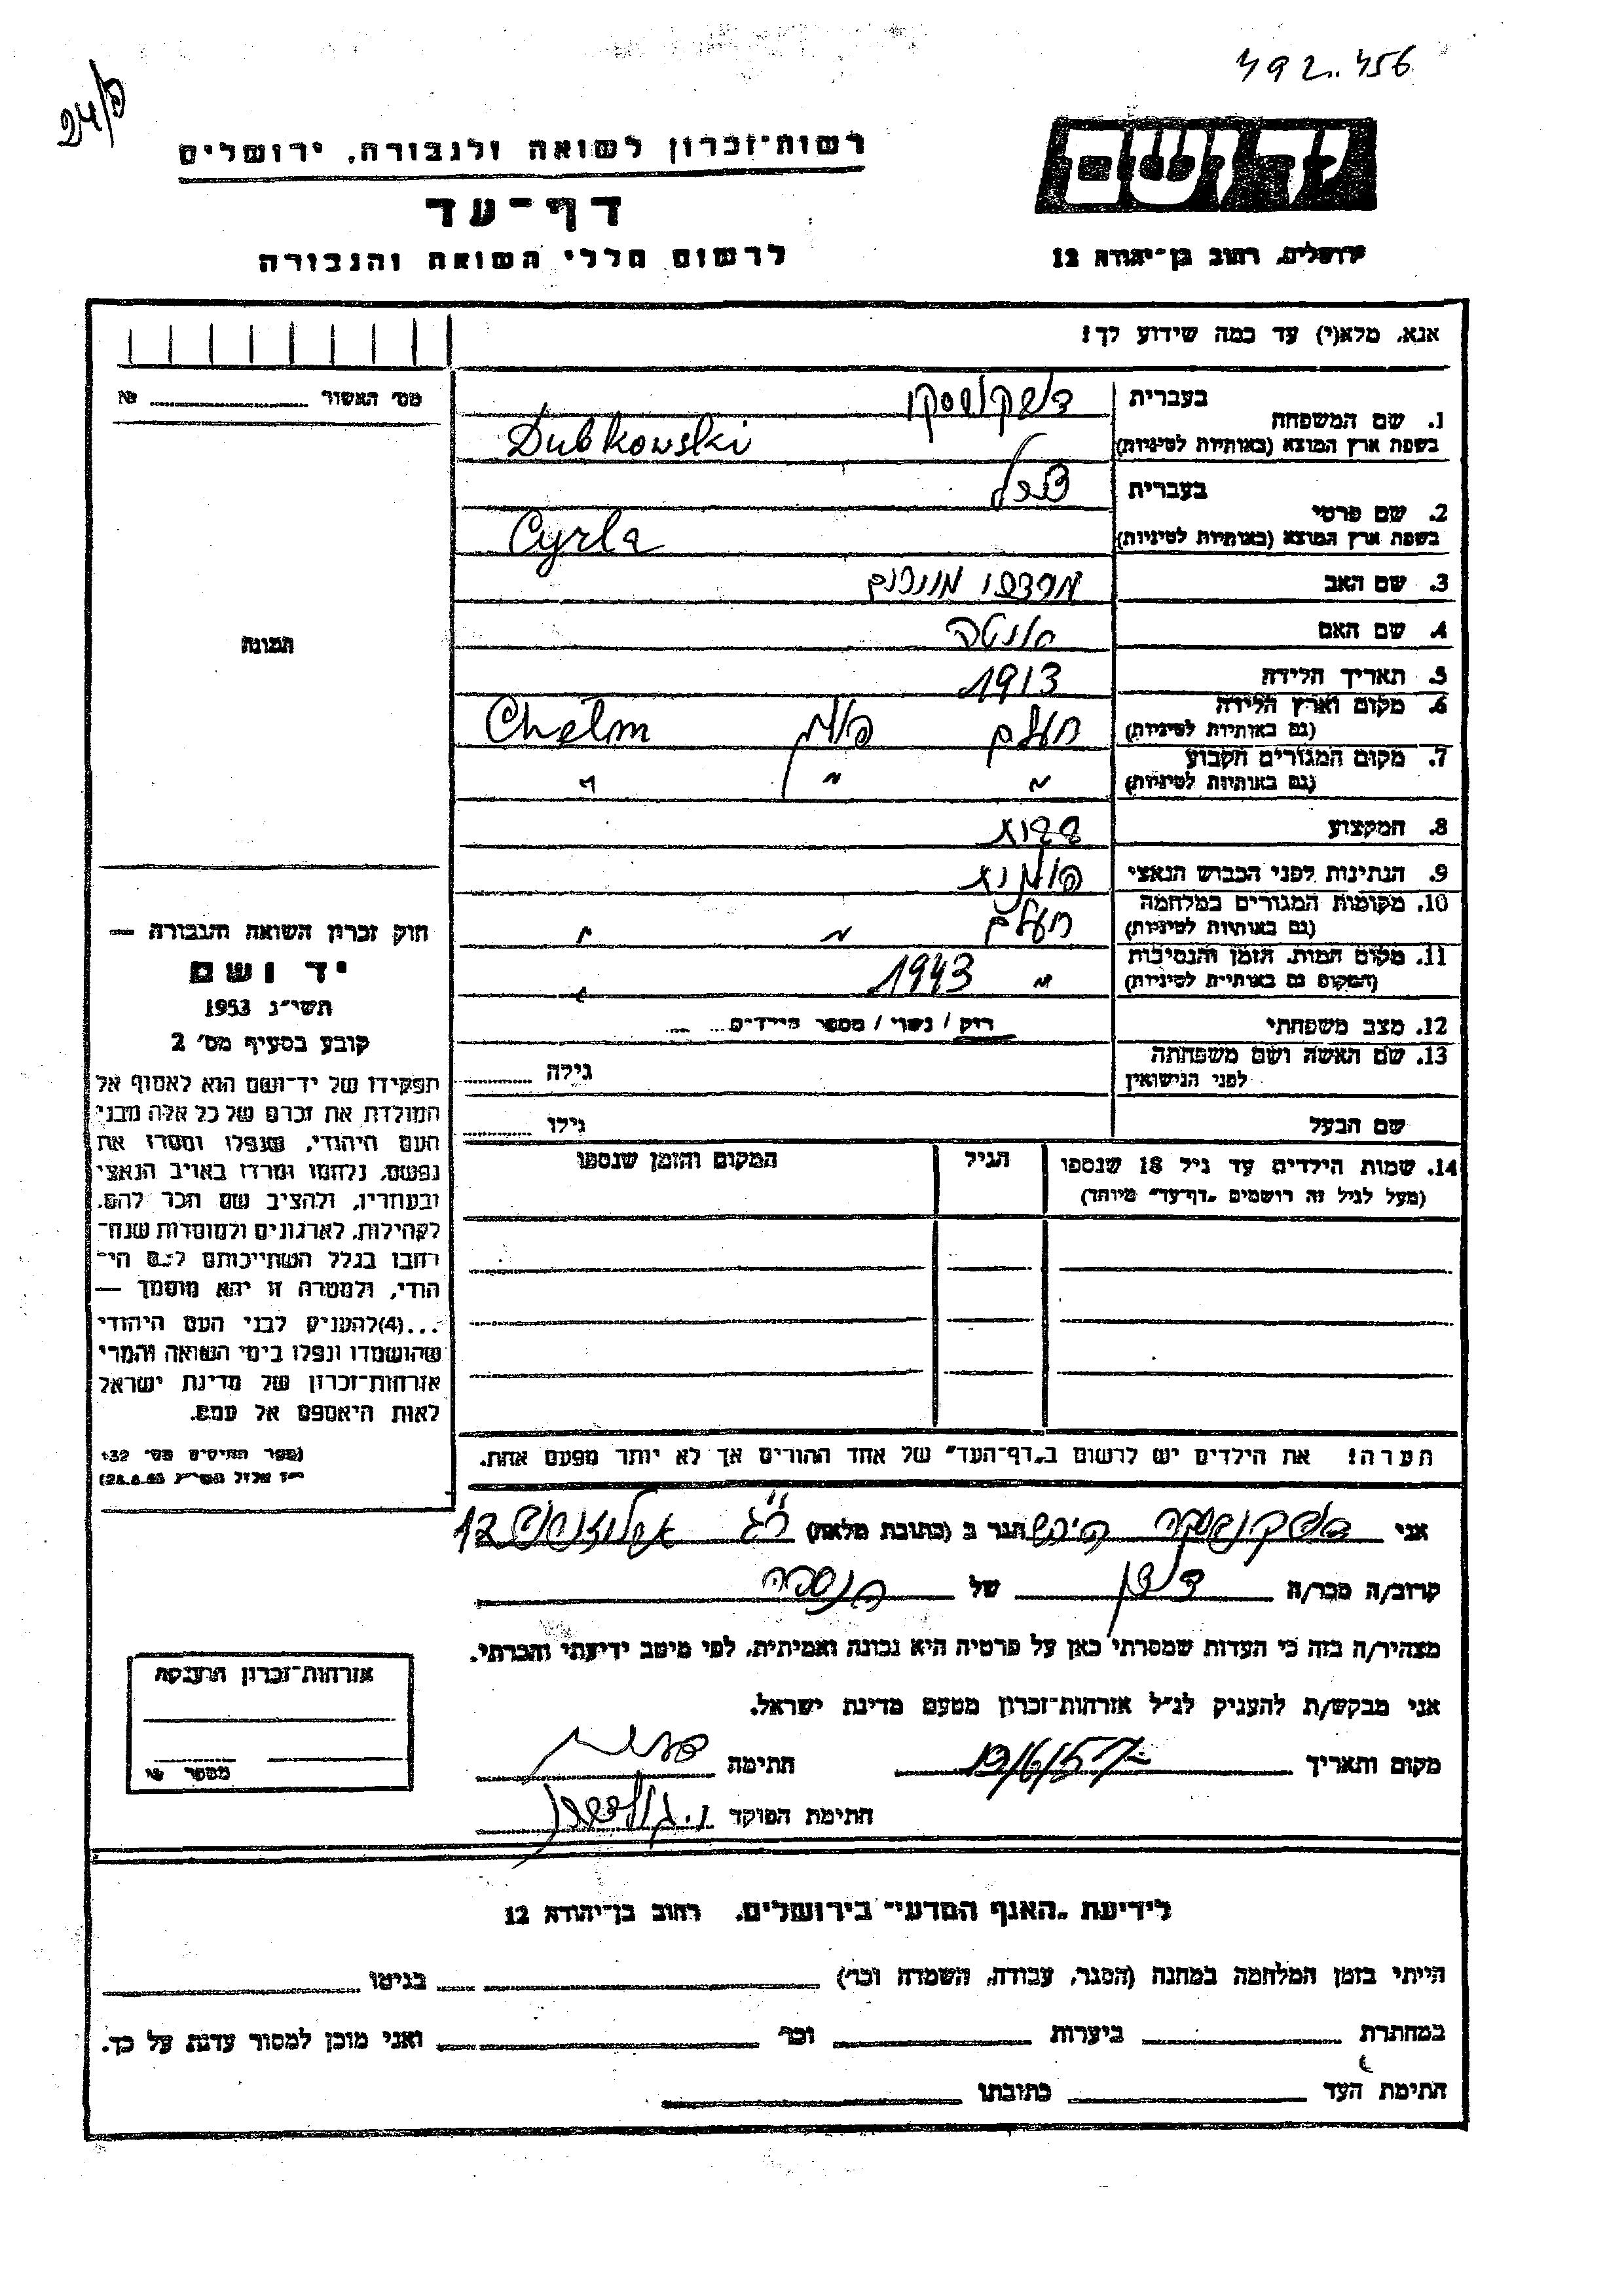 492..456
24/פ
רשות־זכרון לשואה ולגבורה, ירושלים
דף־עד
לרשום חללי השואה והגבורה
יד ושם
ירושלים, רחוב בן־יהודה 12
אנא, מלא(י) עד כמה שידוע לך!
מס׳ האשור №
1. שם המשפחה
בעברית
בשפת ארץ המוצא (באותיות לטיניות)
Dubkowski
2. שם פרטי
בעברית
בשפת ארץ המוצא (באותיות לטיניות) Cyrla
3. שם האב
4. שם האם
5. תאריך הלידה 1913
6. מקום וארץ הלידה
(גם באותיות לטיניות) חעלם פולין Chełm
7. מקום המגורים הקבוע
(גם באותיות לטיניות) " " "
8. המקצוע
9. הנתינות לפני הכבוש הנאצי פולנית
10. מקומות המגורים במלחמה
(גם באותיות לטיניות) חעלם " "
11. מקום המות, הזמן והנסיבות
(המקום גם באותיות לטיניות) " 1943 "
12. מצב משפחתי רוק / נשוי / מספר הילדים
13. שם האשה ושם משפחתה
לפני הנישואין גילה
שם הבעל גילו
14. שמות הילדים עד גיל 18 שנספו
(מעל לגיל זה רושמים „דף־עד" מיוחד)
הגיל
המקום והזמן שנספו
הערה! את הילדים יש לרשום ב„דף־העד" של אחד ההורים אך לא יותר מפעם אחת.
תמונה
חוק זכרון השואה והגבורה —
יד ושם
תשי״ג 1953
קובע בסעיף מס׳ 2
תפקידו של יד־ושם הוא לאסוף אל
המולדת את זכרם של כל אלה מבני
העם היהודי, שנפלו ומסרו את
נפשם, נלחמו ומרדו באויב הנאצי
ובעוזריו, ולהציב שם וזכר להם,
לקהילות, לארגונים ולמוסדות שנח־
רבו בגלל השתייכותם לעם הי־
הודי, ולמטרה זו יהא מוסמך —
...(4) להעניק לבני העם היהודי
שהושמדו ונפלו בימי השואה והמרי
אזרחות־זכרון של מדינת ישראל
לאות היאספם אל עמם.
(ספר החוקים מס׳ 132
י״ז אלול תשי״ג 28.8.53)
אני הגר ב (כתובת מלאה) ר״ג 12
קרוב/ה מכר/ה של הנספה
מצהיר/ה בזה כי העדות שמסרתי כאן על פרטיה היא נכונה ואמיתית, לפי מיטב ידיעתי והכרתי.
אני מבקש/ת להעניק לנ״ל אזרחות־זכרון מטעם מדינת ישראל.
מקום ותאריך חתימה
חתימת הפוקד
אזרחות־זכרון הוענקה
מספר
לידיעת „האגף המדעי" בירושלים, רחוב בן־יהודה 12
הייתי בזמן המלחמה במחנה (הסגר, עבודה, השמדה וכו׳) בגיטו
במחתרת ביערות וכו׳ ואני מוכן למסור עדות על כך.
חתימת העד כתובתו